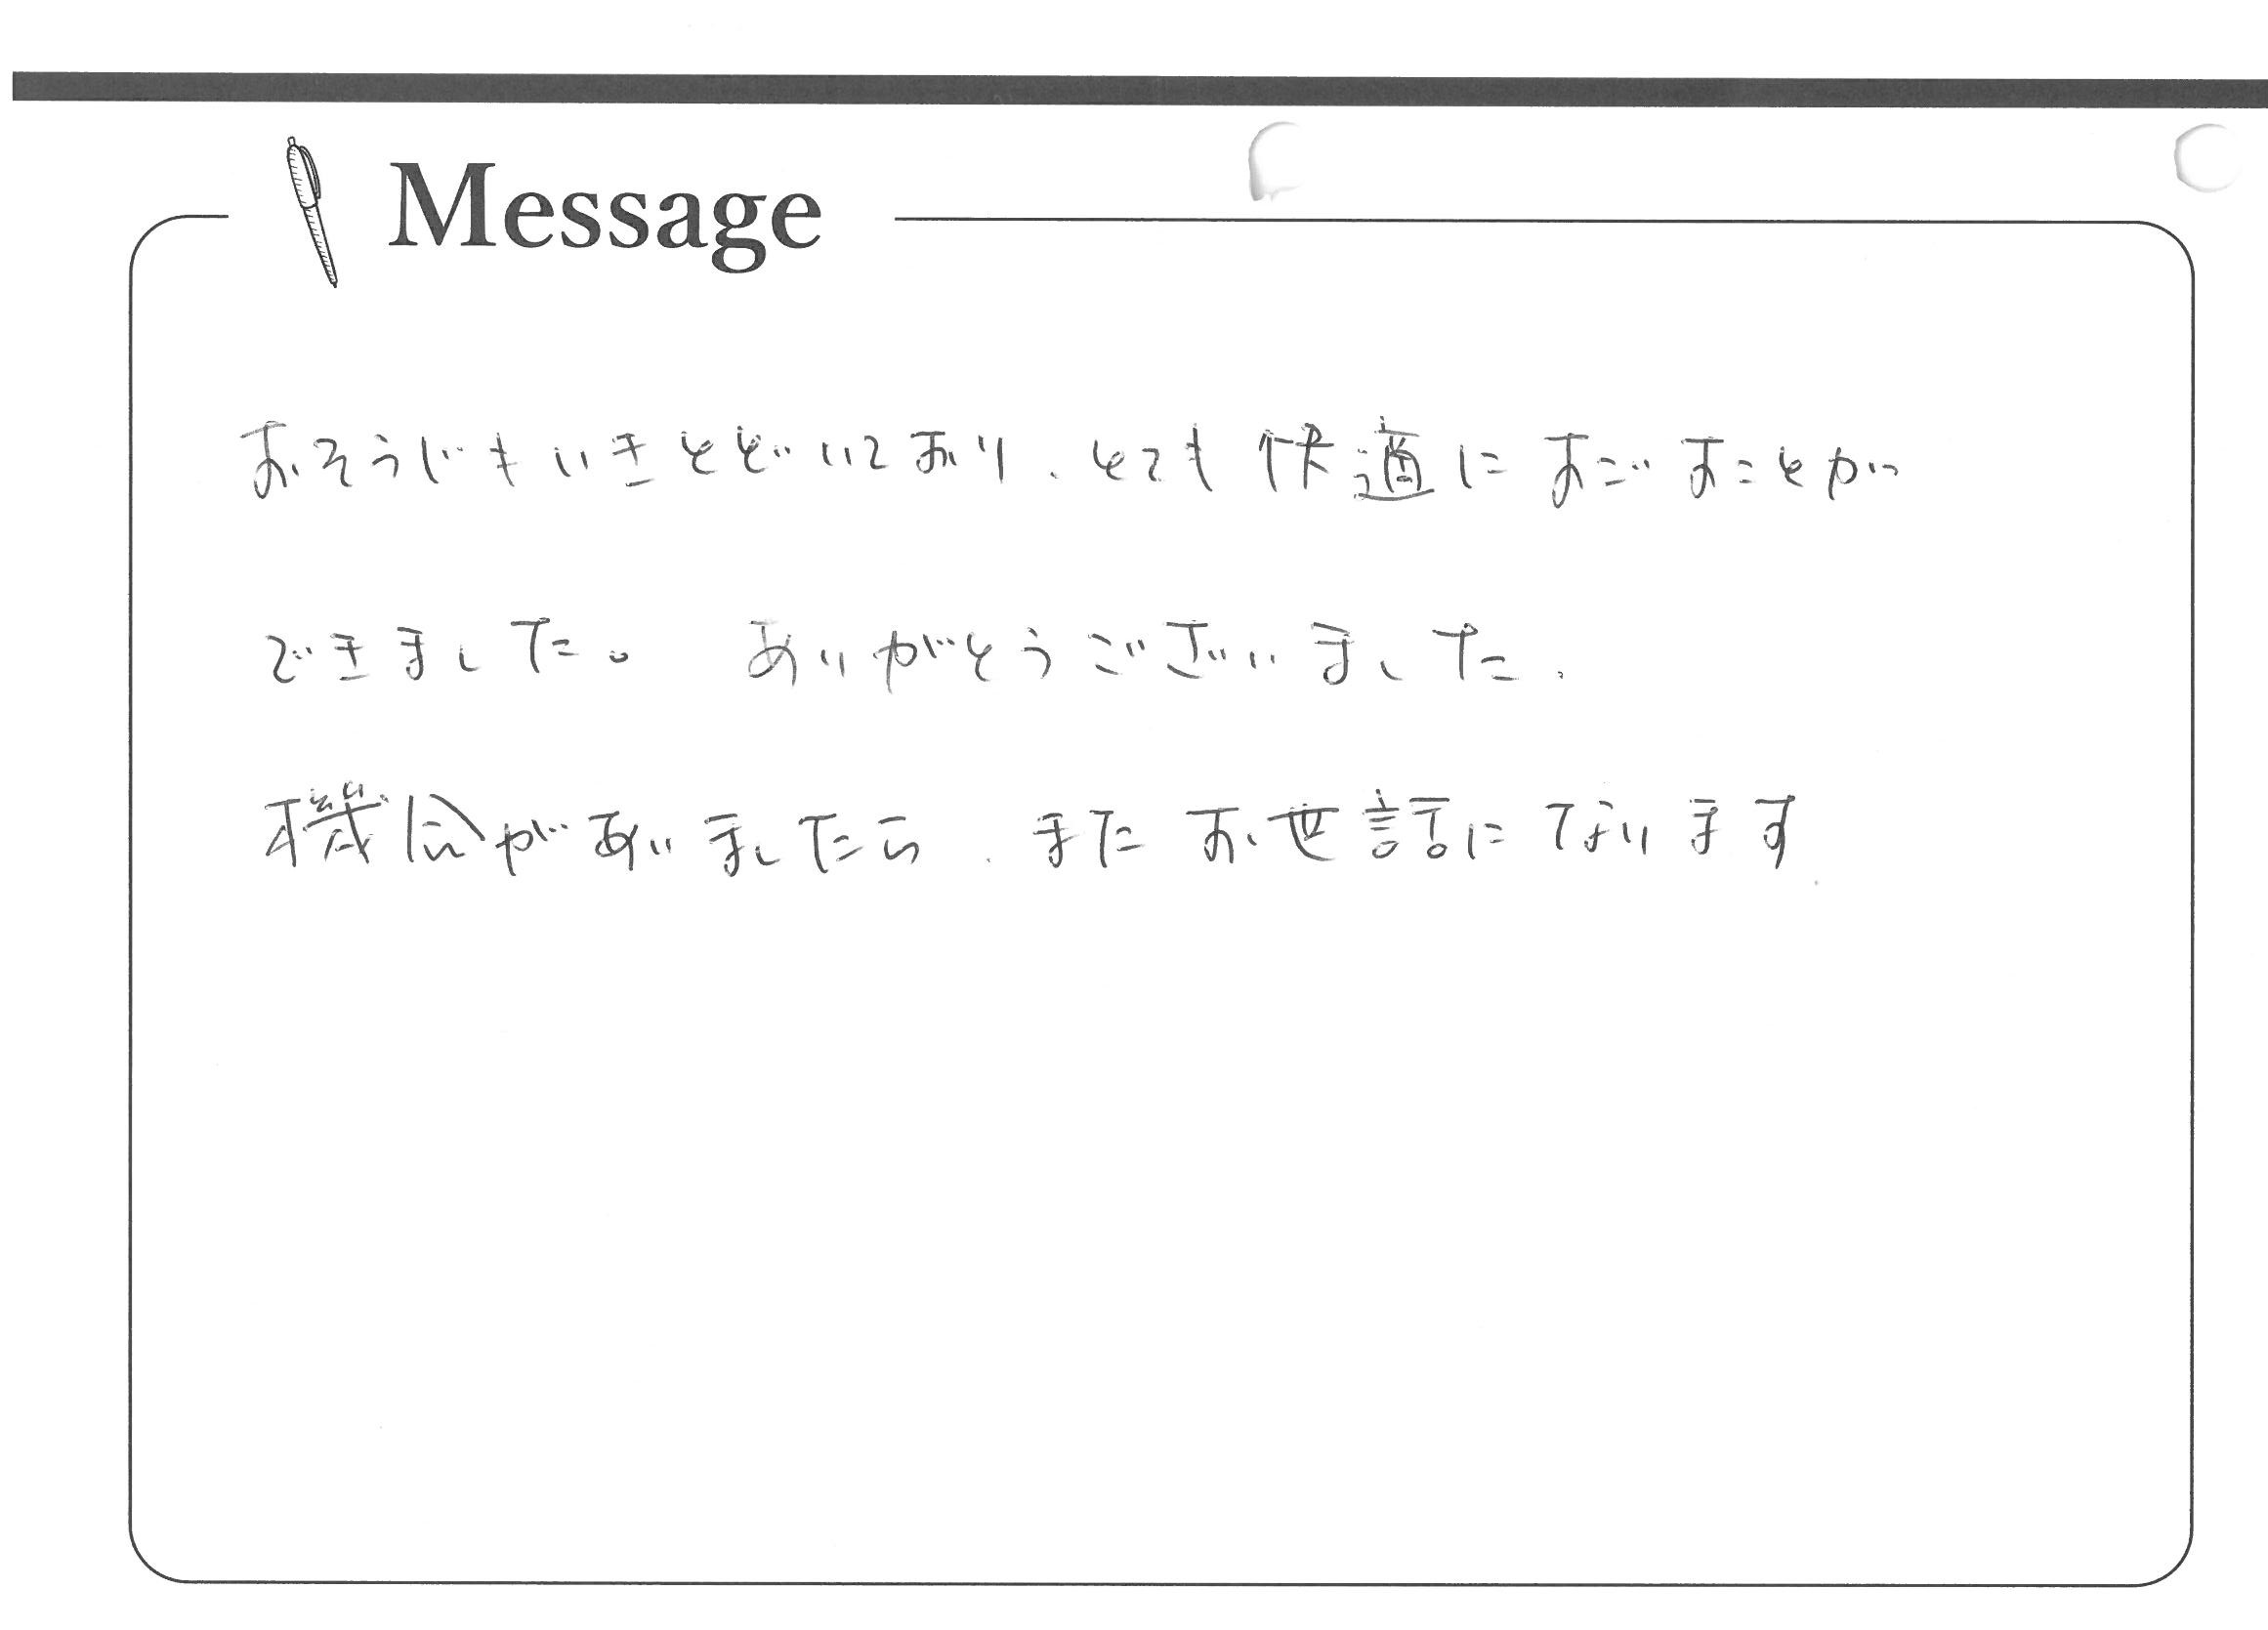 Message
おそうじもいきとどいており、とても快適にすごすことが
できました。 ありがとうございました.
機会がありましたら、またお世話になります.